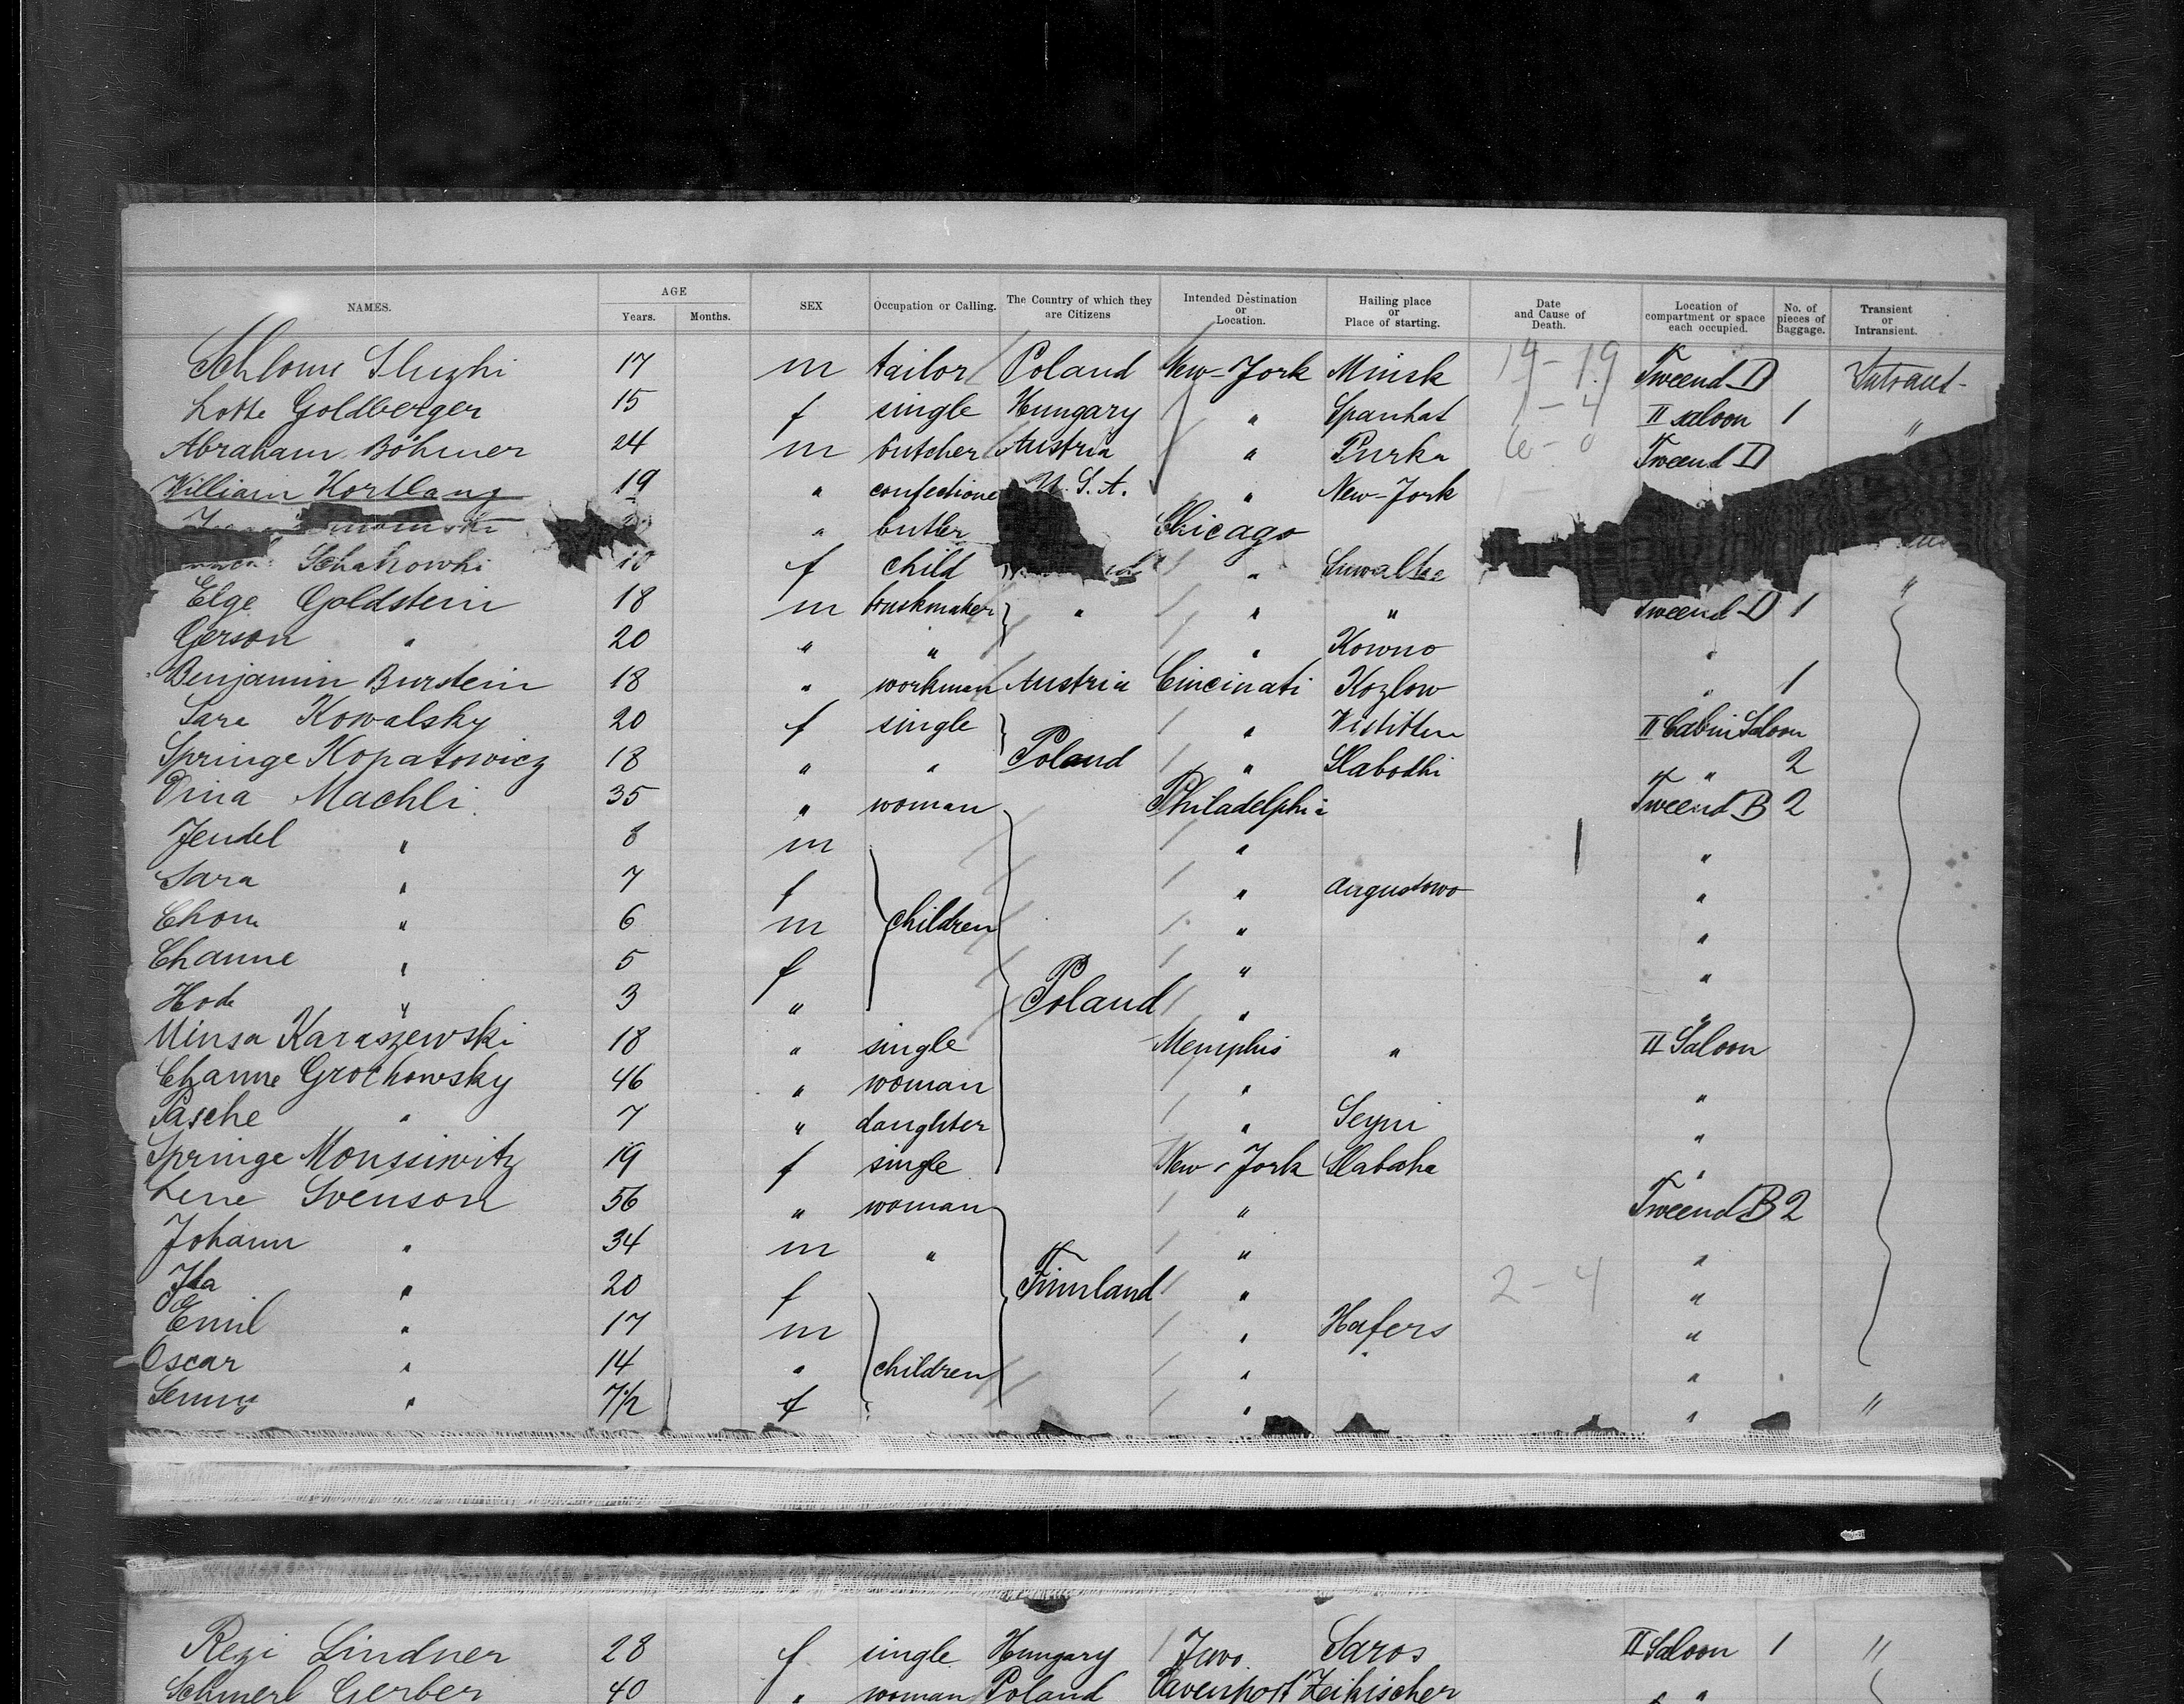 NAMES. AGE Years. Months. SEX Occupation or Calling. The Country of which they are Citizens Intended Destination or Location. Hailing place or Place of starting. Date and Cause of Death. Location of compartment or space each occupied. No. of pieces of Baggage. Transient or Intransient.
17 m tailor Poland New-York Minsk 14-19 Tweend D
Lotte Goldberger 15 f single Hungary " 1-4 II saloon 1 "
Abraham Böhmer 24 m butcher Austria " Purka Tweend D
William Kortlang 19 " confectione U.S.A. " New-York
" butler Chicago
Schakowki 10 f child " Suwalke "
Elge Goldstein 18 m " " " Tweend D 1
Gerson " 20 " " " Kowno "
Benjamin Burstein 18 " workman Austria Cincinati Kozlow " 1
Sara Kowalsky 20 f single " II Cabin Saloon
Springe Kopatowicz 18 " " Poland " Slabodki " 2
Dina Machli 35 " woman Philadelphia Tweend B 2
Jendel " 8 m " "
Sara " 7 f " Augustowo "
" 6 m children " "
Channe " 5 f " "
Hode " 3 " Poland " "
Minsa Karaszewski 18 " single Memphis " II Saloon
Channe Grochowsky 46 " woman " "
Pasche " 7 " daughter " "
Springe 19 f single New-York "
Lene Svenson 56 " woman " Tweend B 2
Johann " 34 m " " "
Ida " 20 f Finnland " 2-4 "
Emil " 17 m " Hafers "
Oscar " 14 " children " "
" 7 1/2 f " " "
Rezi Lindner 28 f single Hungary Saros II Saloon 1 "
Schmerl Gerber 40 " woman Poland Davenport "